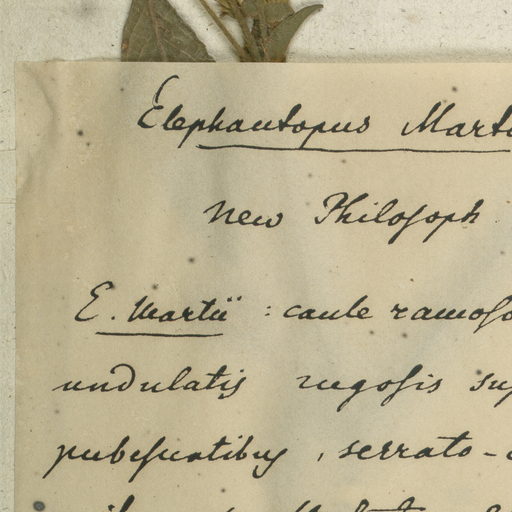 Elephantopus Marti
New Philosoph
E. Martii : caule ramoso
undulatis rugosis sup
pubescentibus, serrato-